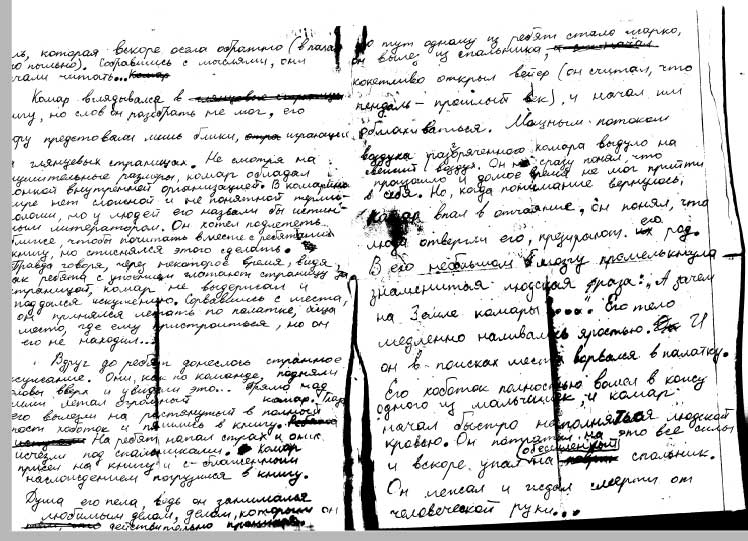 ль, которая вскоре осела обратно (в палат
о пыльно). Собравшись с мыслями, они
чали читать... Комар
Комар вглядывался в глянцевые страницы
игу, но слов он разобрать не мог, его
ору предстовали лишь блики, играющие
а глянцевых страницах. Не смотря на
размеры, комар обладал
онкой внутренней организацией. В комарином
мире нет сложной и не понятной
ологии, но у людей его назвали бы
ным литератором. Он хотел подлететь
ближе, чтобы почитать вместе с ребятами
книгу, но стиснялся этого сделать.
Правда говоря, через некоторое время, видя,
как ребята с упоением глотают страницу за
страницей, комар не выдержал и
поддался искушению. Сорвавшись с места,
он принялся летать по палатке, ища
место, где ему пристроиться, но он
его не находил...
Вдруг до ребят донеслось странное
жужжание. Они, как по команде, подняли
головы вверх и увидели это... Прямо над
ними летал огромный комар.
его вылезли на растянутый в полный
рост хоботок и пялились в книгу.
На ребят напал страх и они
исчезли под спальниками. Комар
присел на книгу и с блаженным
наслаждением погрузился в книгу.
Душа его пела, ведь он занимался
любимым делом, делом, которым он
действительно
о тут одному из ребят стало жарко,
он вылез из спальника,
кокетливо открыл веер (он считал, что
пендаль - прошлый век), и начал им
обмахиваться. Мощным потоком
воздуха разбряченного комара выдуло на
свежий воздух. Он не сразу понял, что
произошло и долгое время не мог прийти
в себя. Но, когда понимание вернулось,
Комар впал в отчаяние, он понял, что
люди отвергли его, презирают его род.
В его небольшом мозгу промелькнула
знаменитая людская фраза: "А зачем
на Земле комары ...". Его тело
медленно наливалось яростью. И
он в поисках места ворвался в палатку.
Его хоботок полностью вошел в кожу
одного из мальчишек, и комар
начал быстро наполняться людской
кровью. Он потратил на это все силы
и вскоре упал на обесиленный спальник.
Он лежал и ждал смерти от
человеческой руки...